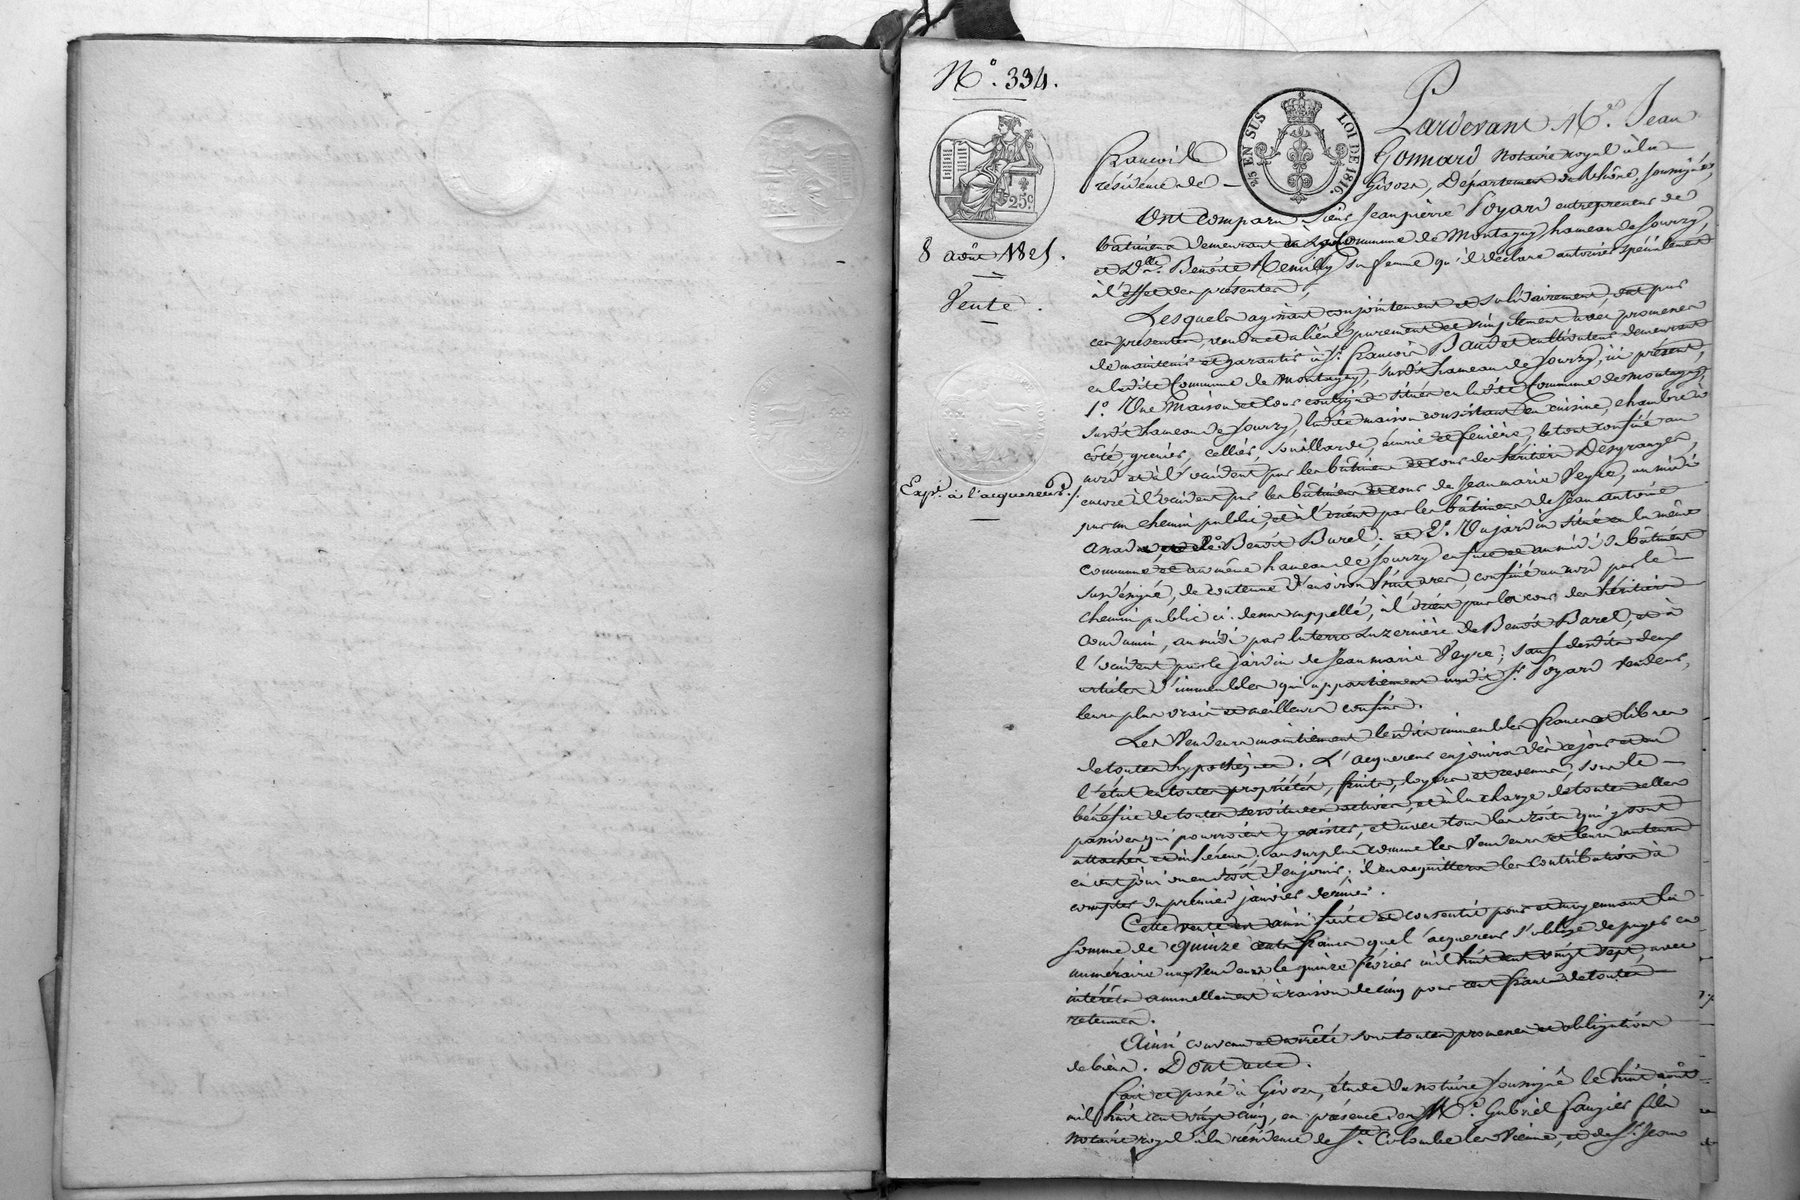 N.° 334.
25c.
8 août 1825.
Vente.
Exp.on à l'acquereur./.
5/5 EN SUS LOI DE 1816.
Pardevant M.e Jean
François Gonnard notaire royal à la
résidence de Givors, Département du Rhône, soussigné,
Ont comparu Sieur Jeanpierre Poyard entrepreneur de
bâtimens demeurant en la Commune de Montagny, hameau de Sourzy,
et D.lle Benoite Remilly sa femme qu'il déclare autoriser spécialement
à l'effet des présentes;
Lesquels agissant conjointement et solidairement, ont par
ces présentes, vendu et aliéné purement et simplement avec promesse
de maintenir et garantir à S.r François Baudet cultivateur demeurant
en ladite Commune de Montagny, susdit hameau de Sourzy, ici présent,
1.° Une Maison et cour contigue située en ladite Commune de Montagny,
susdit hameau de Sourzy, ladite maison consistant en cuisine, chambre à
côté, grenier, cellier, souillarde, écurie et fenière, le tout confiné au
nord et à l'occident par les bâtimens et cour des héritiers Desgranges,
encore à l'occident par les bâtimens et cour de Jeanmarie Veyre, au midi
par un chemin public, et à l'orient par les bâtimens de Jean Antoine
et de Benoit Burel; et 2.° Un jardin situé en la même
commune et au même hameau de Sourzy en face et au midi du bâtiment
susdésigné, de contenue d'environ huit ares, confiné au nord par le
chemin public ci-dessus rappellé, à l'orient par la cour des héritiers
Condamin, au midi par la terre Luzernière de Benoit Burel, et à
l'occident par le jardin de Jeanmarie Veyre; sauf desdits deux
articles d'immeubles qui appartiennent audit S.r Poyard vendeur,
leurs plus vrais et meilleurs confins.
Les Vendeurs maintiennent lesdits immeubles francs et libres
de toutes hypothèques. L'acquereur en jouira dès ce jour et en
l'état en toutes propriétés, fruits, loyers et revenus, sous le
bénéfice de toutes servitudes actives, et à la charge de toutes celles
passives qui pourroient y exister, et avec tous les droits qui y sont
attachés et inhérens; au surplus comme les Vendeurs et leurs auteurs
en ont joui ou en droit d'en jouir; il en acquittera les contributions à
compter du premier janvier dernier.
Cette vente est ainsi faite et consentie pour et moyennant la
somme de quinze cents francs que l'acquereur s'oblige de payer en
numéraire aux Vendeurs le quinze février mil huit cent vingt sept, avec
intérêts annuellement à raison de cinq pour cent francs de toutes
retenues.
Ainsi convenu et arrêté sous toutes promesses et obligations
de biens. Dont acte.
Fait et passé à Givors, étude du notaire soussigné le huit août
mil huit cent vingt cinq, en présence de M.e Gabriel Faugier fils
notaire royal à la résidence de S.te Colombe les Vienne, et de S.r Jean